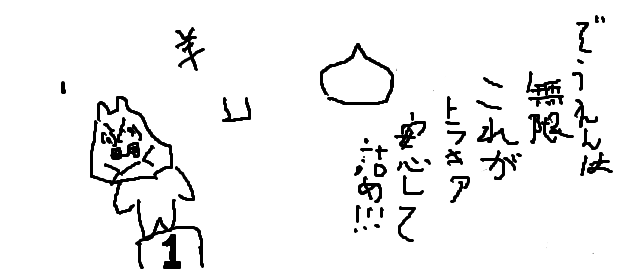 ぞうえんは
無限
これが
トラキア
安心して
詰め!!!
1